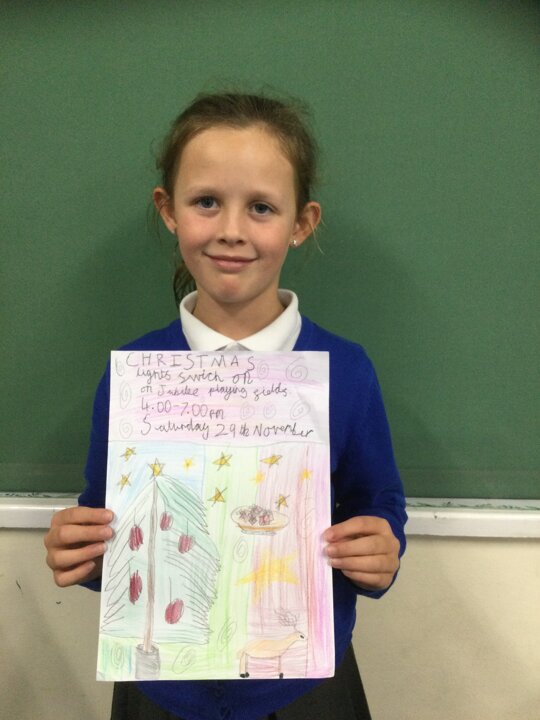 CHRISTMAS
Lights swich on
on Jubilee playing fields
4.00-7.00PM
Saturday 29th November